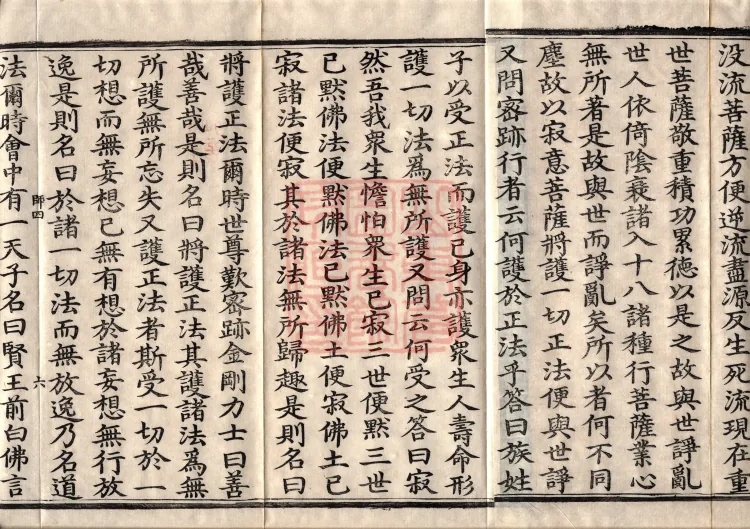 没流菩薩方便逆流盡源反生死流現在重
世菩薩敬重積功累德以是之故與世諍亂
世人依倚陰衰諸入十八諸種行菩薩業心
無所著是故與世而諍亂矣所以者何不同
塵故以寂意菩薩將護一切正法便與世諍
又問密跡行者云何護於正法乎答曰族姓
子以受正法而護己身亦護衆生人壽命形
護一切法爲無所護又問云何受之答曰寂
然吾我衆生憺怕衆生已寂三世便默三世
已默佛法便默佛法已默佛土便寂佛土已
寂諸法便寂其於諸法無所歸趣是則名曰
將護正法爾時世尊歎密跡金剛力士曰善
哉善哉是則名曰將護正法其護諸法爲無
所護無所忘失又護正法者斯受一切於一
切想而無妄想已無有想於諸妄想無行放
逸是則名曰於諸一切法而無放逸乃名道
師四 六
法爾時會中有一天子名曰賢王前白佛言